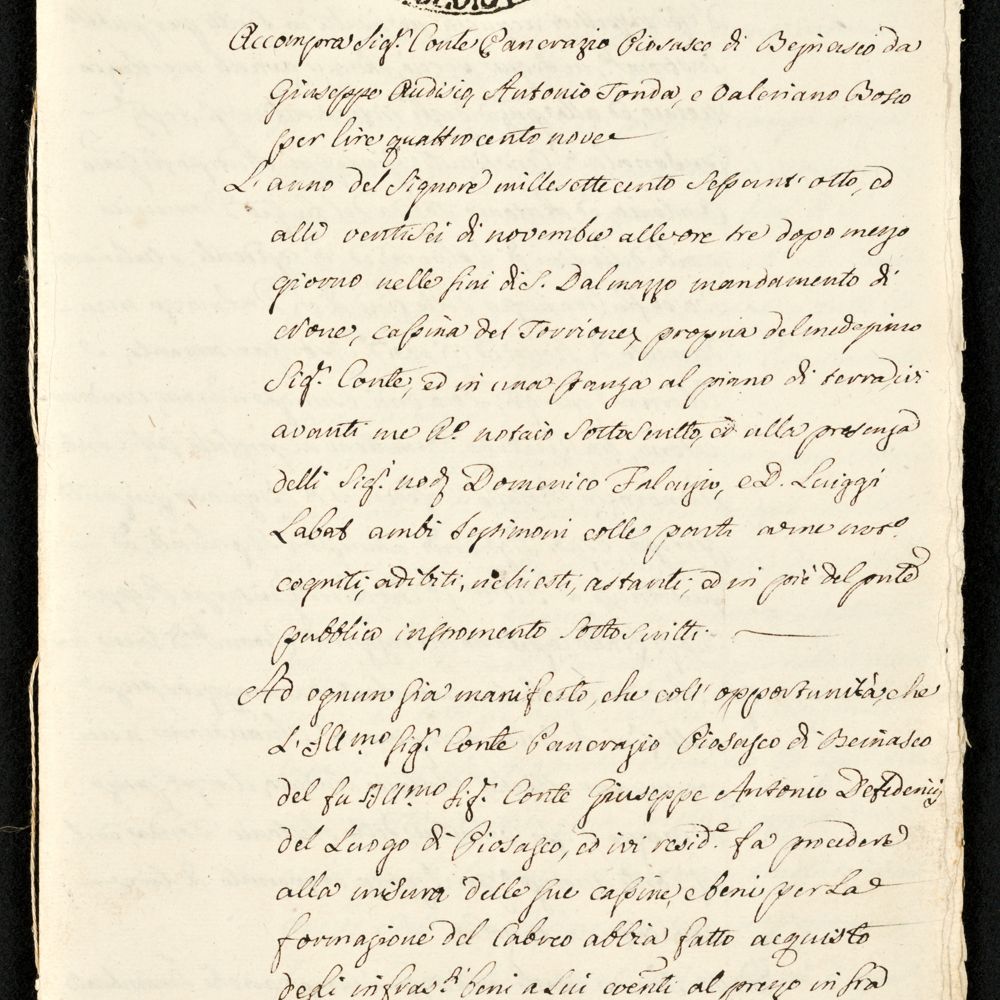 Accompra Sig.r Conte Pancrazio Piosasco di Beinasco da
Giuseppe Audisio, Antonio Tonda, e Valeriano Bosco
per lire quattrocento nove
L'anno del Signore millesettecento sessant'otto, ed
alli ventisei di novembre alle ore tre dopo mezzo
giorno nelle fini di S. Dalmazzo mandamento di
cassina del Torrione, propria del medesimo
Sig.r Conte, ed in una stanza al piano di terra ivi
avanti me R.o notaio sottoscritto, ed alla presenza
delli Sig.i Domenico, e D. Luiggi
Labat ambi testimoni colle parti a me not.o
cogniti, adibiti, richiesti, astanti, ed in piè del pnte
pubblico instromento sottoscritti.
Ad ognun sia manifesto, che coll'opportunità, che
L'Ill.mo Sig.r Conte Pancrazio Piosasco di Beinasco
del fu Ill.mo Sig.r Conte Giuseppe Antonio Defedericij
del Luogo di Piosasco, ed ivi resid.e fa procedere
alla misura delle sue cassine, e beni per la
formazione del Cabreo abbia fatto acquisto
degli infras.ti beni a Lui coenti al prezzo infra